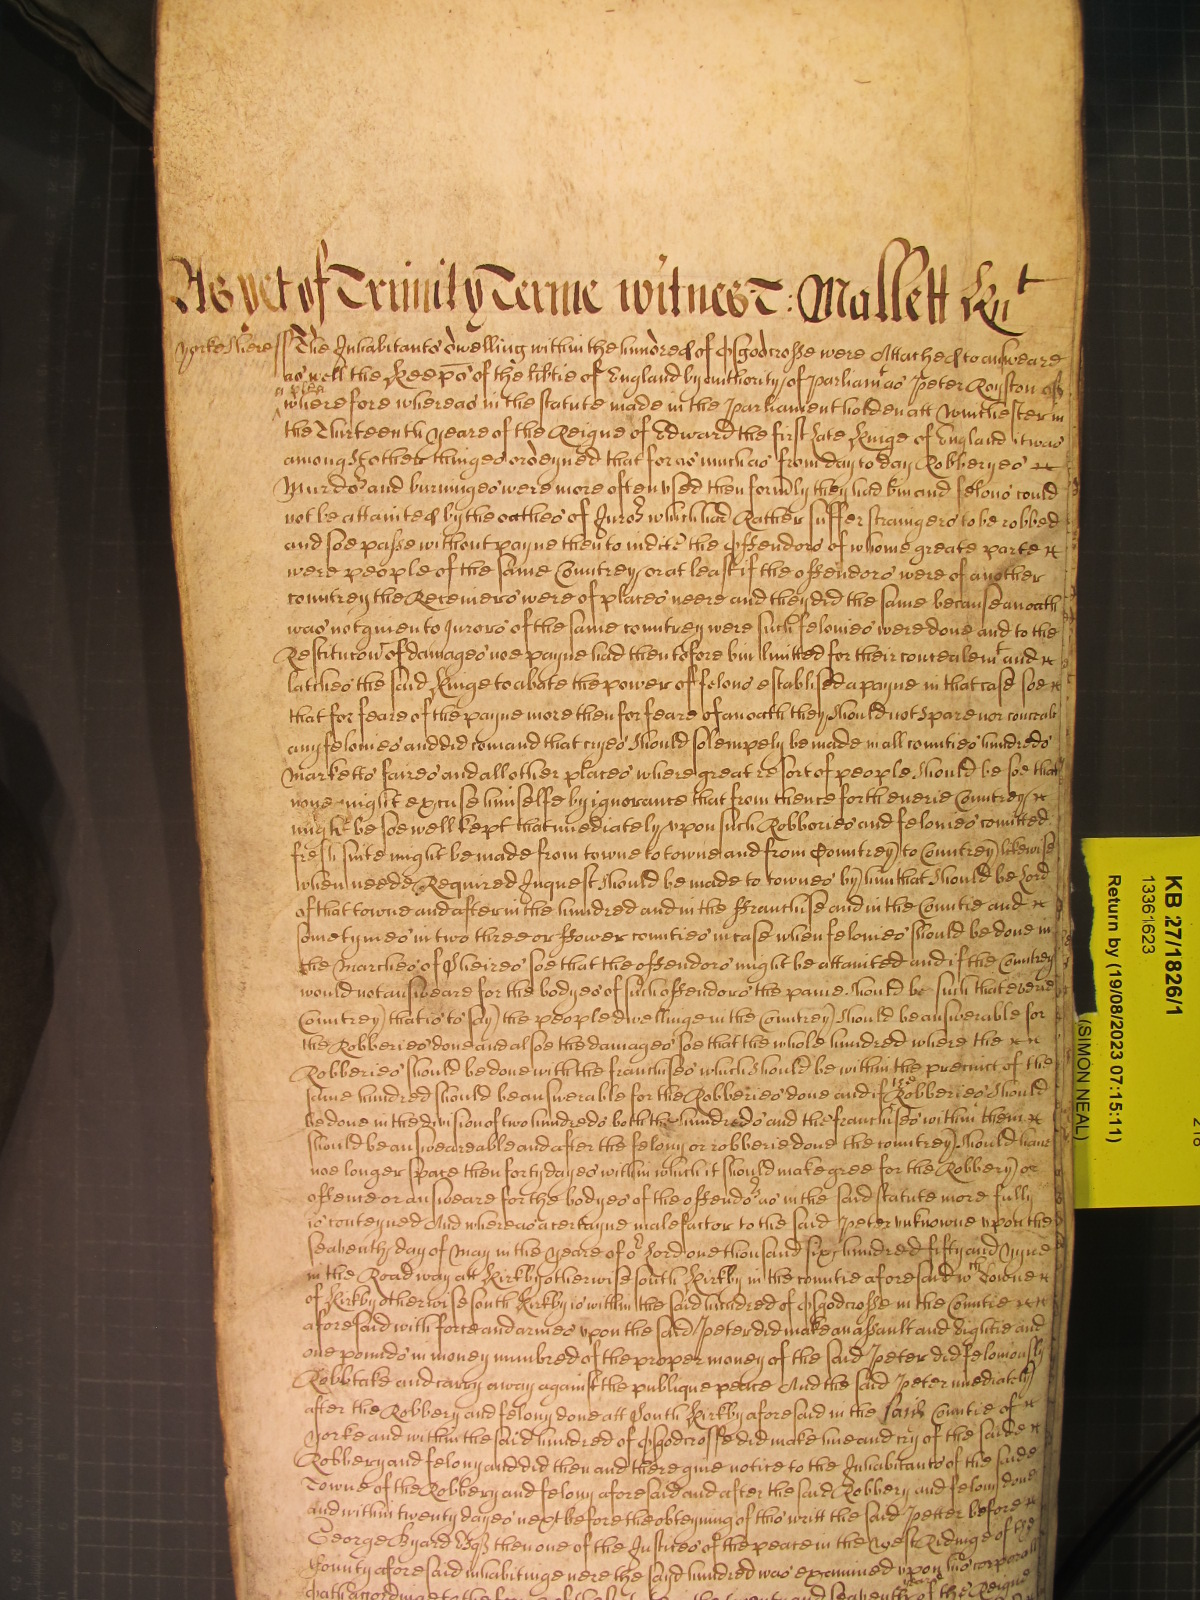 As yet of Trinity Terme witnes T: Mallett Knt
Yorkeshiere ss The Inhabitants dwelling within the hundred of Osgodcrosse were Attached to answeare
as well the Keepers of the libtie of England by authority of Parliamt as Peter Royston of
a plea
wherefore whereas in the statute made in the Parliament holden att Winchester in
the Thirteenth yeare of the Reigne of Edward the first late Kinge of England it was
amongst other thinges ordeyned that for as much as from day to day Robberyes
Murders and burninges were more often vsed then formly they had bin and felons could
not be attainted by the oathes of Juros which had Rather suffer strangers to be robbed
and soe passe without payne then to indite the Offendors of whome greate parte
were people of the same Countrey or at least if the offendors were of another
countrey the Receivers were of places neere and they did the same because an oath
was not given to Jurors of the same countrey were such felonies were done and to the
Restitucon of damages noe payne had thentofore bin limitted for their concealemt and
latches the said Kinge to abate the power of felons establised a payne in that case soe
that for feare of the payne more then for feare of an oath they should not spare nor conceale
any felonies and did comand that cryes should solempely be made in all counties hundreds
Marketts faires and all other places where great resort of people should be soe that
none might excuse himselfe by ignorance that from thence forth euerie Countrey
might be soe well kept that imediately vpon such Robberies and felonies comitted
fresh suite might be made from towne to towne and from Countrey to Countrey likewise
when neede Required Inquest should be made to townes by him that should be Lord
of that towne and after in the hundred and in the ffranchise and in the Countie and
sometymes in two three or ffower counties in case when felonies should be done in
the Marches of Sheires soe that the offendors might be attainted and if the Countrey
would not answeare for the bodyes of such offendors the paine should be such that everie
Countrey that is to say the people dwellinge in the Countrey should be answerable for
the Robberies done and alsoe the damages soe that the whole hundred where the
Robberies should be done with the franchises which should be within the precinct of the
same hundred should be answerable for the Robberies done and if the Robberies should
be done in the division of two hundreds both the hundreds and the franchises within them
should be answeareable and after the felony or robberie done the countrey should haue
noe longer space then forty dayes within which it should make gree for the Robbery or
offence or answeare for the bodyes of the offendors as in the said statute more fully
is conteyned And whereas a certayne malefactor to the said Peter unknowne upon the
seaventh day of May in the yeare of or Lord one thousand six hundred fifty and Nyne
in the Road way att Kirkby otherwise south Kirkby in the countie aforesaid wch Towne
of Kirkby otherwise South Kirkby is within the said hundred of Osgodcrosse in the Countie
aforesaid with force and armes vpon the said Peter did make an assault and Eightie and
one pounds in money numbred of the proper money of the said Peter did feloniously
Robb take and carry away against the publique peace And the said Peter imediately
after the Robbery and felony done att South Kirkby aforesaid in the said Countie of
Yorke and within the said hundred of Osgodcrosse did make hue and cry of the saide
Robbery and felony and did then and there give notice to the Inhabitants of the saide
Towne of the Robbery and felony aforesaid and after the said Robbery and felony done
and within twenty dayes next before the obteyning of this writt the said Petter before
George Byard Esqr then one of the Justices of the peace in the West Ridinge of the
County aforesaid inhabitinge nere the sayd hundred was examined vpon his corporall
yeare
oath accordinge to the forme of the seaventh of the Reigne
KB 27/1826/1
13361623
Return by (19/08/2023 07:15:11)
(SIMON NEAL)